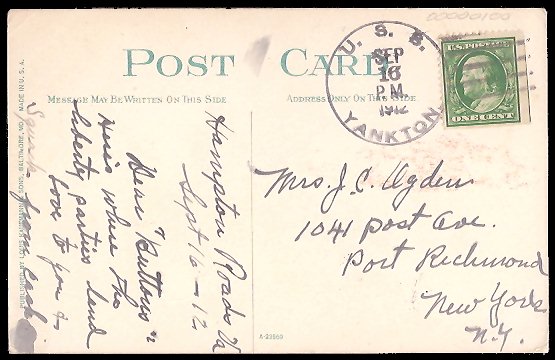 POST CARD
MESSAGE MAY BE WRITTEN ON THIS SIDE
ADDRESS ONLY ON THIS SIDE
00000100
U. S. S.
SEP
16
P.M.
1912
YANKTON
U.S. POSTAGE
ONE CENT
Hampton Roads Va
Sept 16-12
Dear "Buttons"
Here's where the
liberty parties land
love to you &
from each
Mrs. J. C. Ogden
1041 Post Ave.
Port Richmond
New York
N.Y.
A-23560
BALTIMORE, MD. MADE IN U. S. A.